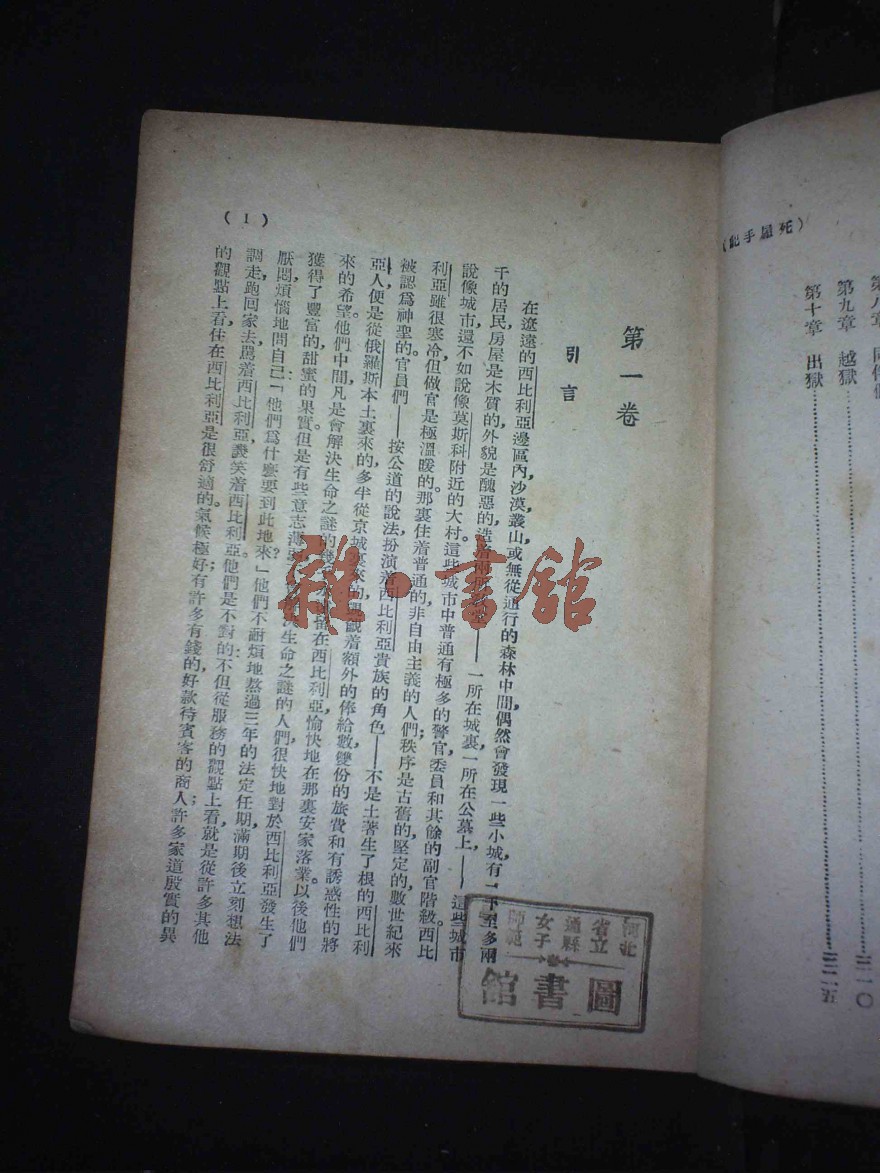 (死屋手記)
第九章 越獄…………三一〇
第十章 出獄…………三二五
第一卷
引言
在遼遠的西比利亞邊區內,沙漠叢山,或無從通行的森林中間,偶然會發現一些小城,有一下至多兩
千的居民,房屋是木質的,外貌是醜惡的,造着兩所教堂——一所在城裏,一所在公墓上,——這些城市
說像城市,還不如說像莫斯科附近的大村。這些城市中普通有極多的警官,委員和其餘的副官階級。西比
利亞雖很寒冷,但做官是極溫暖的。那裏住着普通的,非自由主義的人們;秩序是古舊的,堅定的,數世紀來
被認爲神聖的。官員們——按公道的說法,扮演着西比利亞貴族的角色——不是土著生了根的西比利
亞人,便是從俄羅斯本土裏來的,多半從京城裏來的,覬覦着額外的俸給,數雙份的旅費和有誘惑性的將
來的希望。他們中間凡是會解決生命之謎的留在西比利亞,愉快地在那裏安家落業。以後他們
獲得了豐富的甜蜜的果實。但是有些意志薄生命之謎的人們很快地對於西比利亞發生了
厭悶,煩惱地問自己:「他們爲什麼要到此地來?」他們不耐煩地熬過三年的法定任期,滿期後立刻想法
調走,跑回家去,罵着西比利亞,譏笑着西比利亞。他們是不對的:不但從服務的觀點上看,就是從許多其他
的觀點上看,住在西比利亞是很舒適的。氣候極好;有許多有錢的,好款待賓客的商人;許多家道殷實的異
(1)
河北
省立
通縣
女子
師範
圖書館
雜·書館